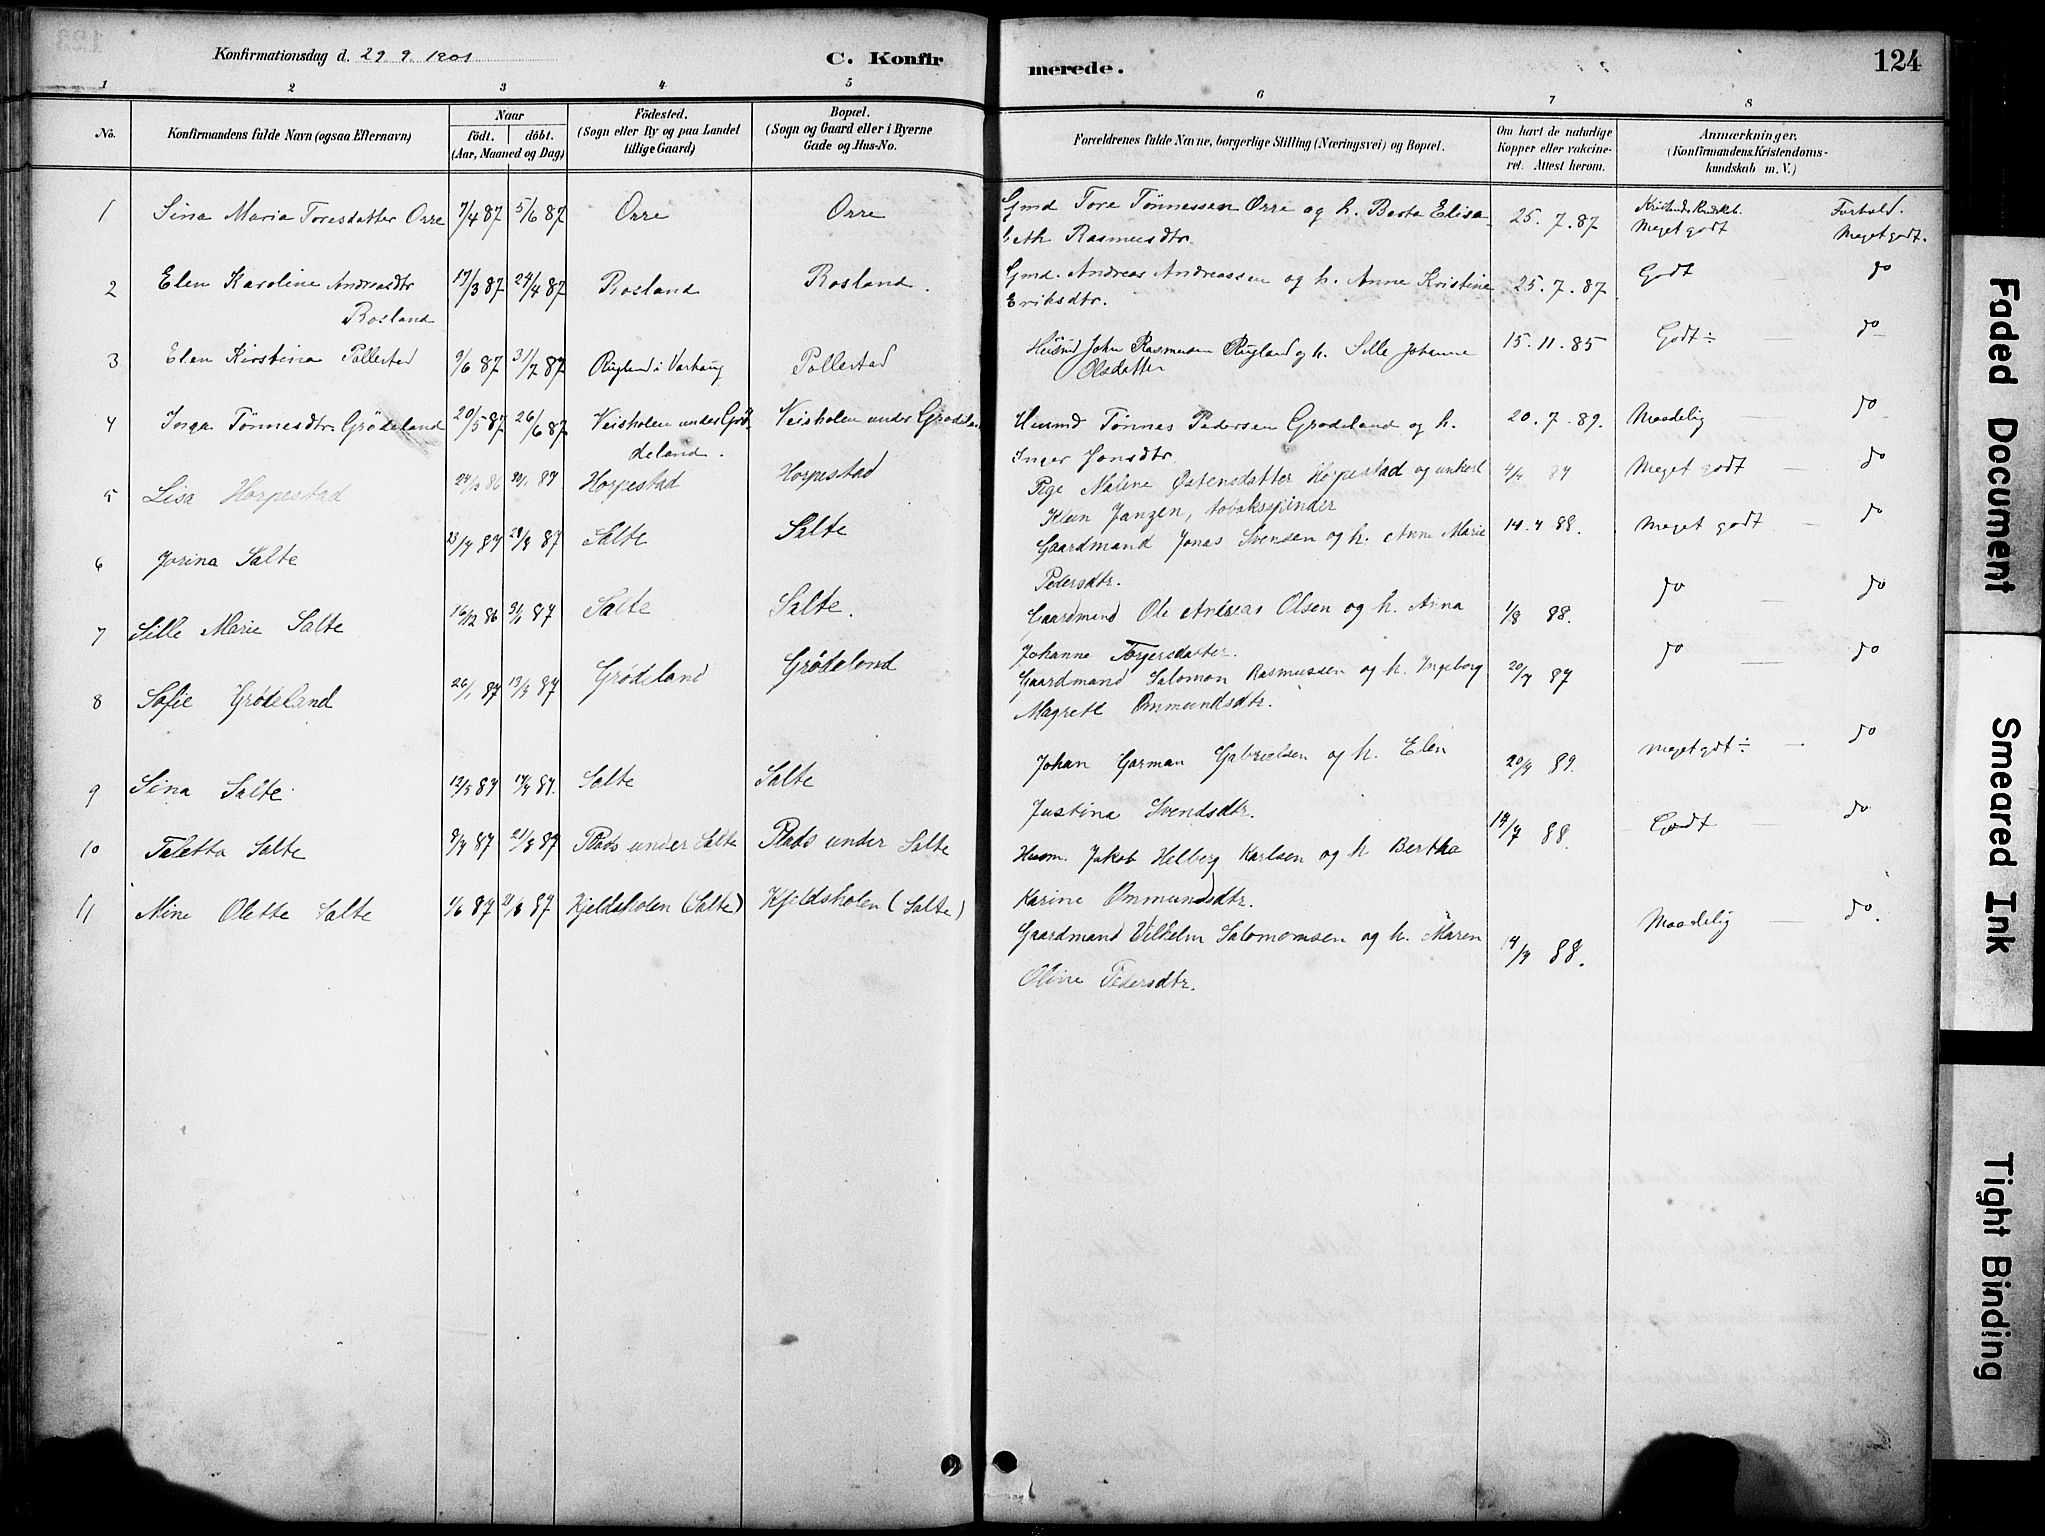 Konfirmationsdag d. 29 9 1901
C. Konfirmerede.
124
1 2 3 4 5 6 7 8
No.
Konfirmandens fulde Navn (ogsaa Efternavn)
Naar
födt. döbt.
(Aar, Maaned og Dag)
Födested.
(Sogn eller By og paa Landet
tillige Gaard)
Bopæl.
(Sogn og Gaard eller i Byerne
Gade og Hus-No.
Forældrenes fulde Navne, borgerlige Stilling (Næringsvei) og Bopæl.
Om havt de naturlige
Kopper eller vakcine-
ret. Attest herom.
Anmærkninger.
(Konfirmandens Kristendoms-
kundskab m. V.)
1 Sina Maria Toresdatter Orre 7/4 87 5/6 87 Orre Orre Gmd Tore Tønnessen Orre og h. Berta Elisa- 25. 7. 87 Meget godt Forhold. Meget godt.
beth Rasmusdtr.
2 Elen Karoline Andreasdtr 17/3 87 24/4 87 Rosland Rosland. Gmd. Andreas Andreassen og h. Anne Kristine 25. 7. 87. Godt do
Rosland
Eriksdtr.
3 Elen Kirstina Pollestad 9/6 87 31/7 87 Rugland i Varhaug Pollestad Husmd John Rasmusen Rugland og h. Sille Johanne 15. 11. 85 Godt ÷ do
Olsdatter
4 Inga Tønnesdtr. Grödeland 20/5 87 26/6 87 Veisholen under Grö- Veisholen under Grødeland Husmd Tønnes Pedersen Grødeland og h. 20. 7. 89. Maadelig do
deland.
Inger Jonsdtr.
5 Lisa Horpestad Horpestad Horpestad Pige Malene Østensdatter Horpestad og unkarl Meget godt — do
Klein Janzen, tobaksspinder
6 Jorina Salte Salte Salte Gaardmand Jonas Svensen og h. Anne Marie Meget godt — do
Pedersdtr.
7 Sille Marie Salte 16/12 86 31/1 87 Salte Salte. Gaardmand Ole Andreas Olsen og h. Anna 1/8 88. do — do
Johanne Torgersdatter.
8 Sofie Grødeland 26/1 87 13/3 87 Grødeland Grødeland Gaardmand Salomon Rasmussen og h. Ingeborg 20/7 87 do — do
Magrete Ommundsdtr.
9 Sina Salte. Salte Salte Johan Garman Gabrielsen og h. Elen Meget godt ÷ — do
Justina Svendsdtr.
10 Taletta Salte Plads under Salte Plads under Salte Husm. Jakob Helberg Karlsen og h Bertha 14/7 88. Godt — do
Karine Ommundsdtr.
11 Nine Olette Salte 1/6 87 21/8 87 Kjeldsholen (Salte) Kjeldsholen (Salte) Gaardmand Vilhelm Salomonsen og h. Maren 14/7 88. Maadelig — do.
Oline Pedersdtr.
Faded Document
Smeared Ink
Tight Binding